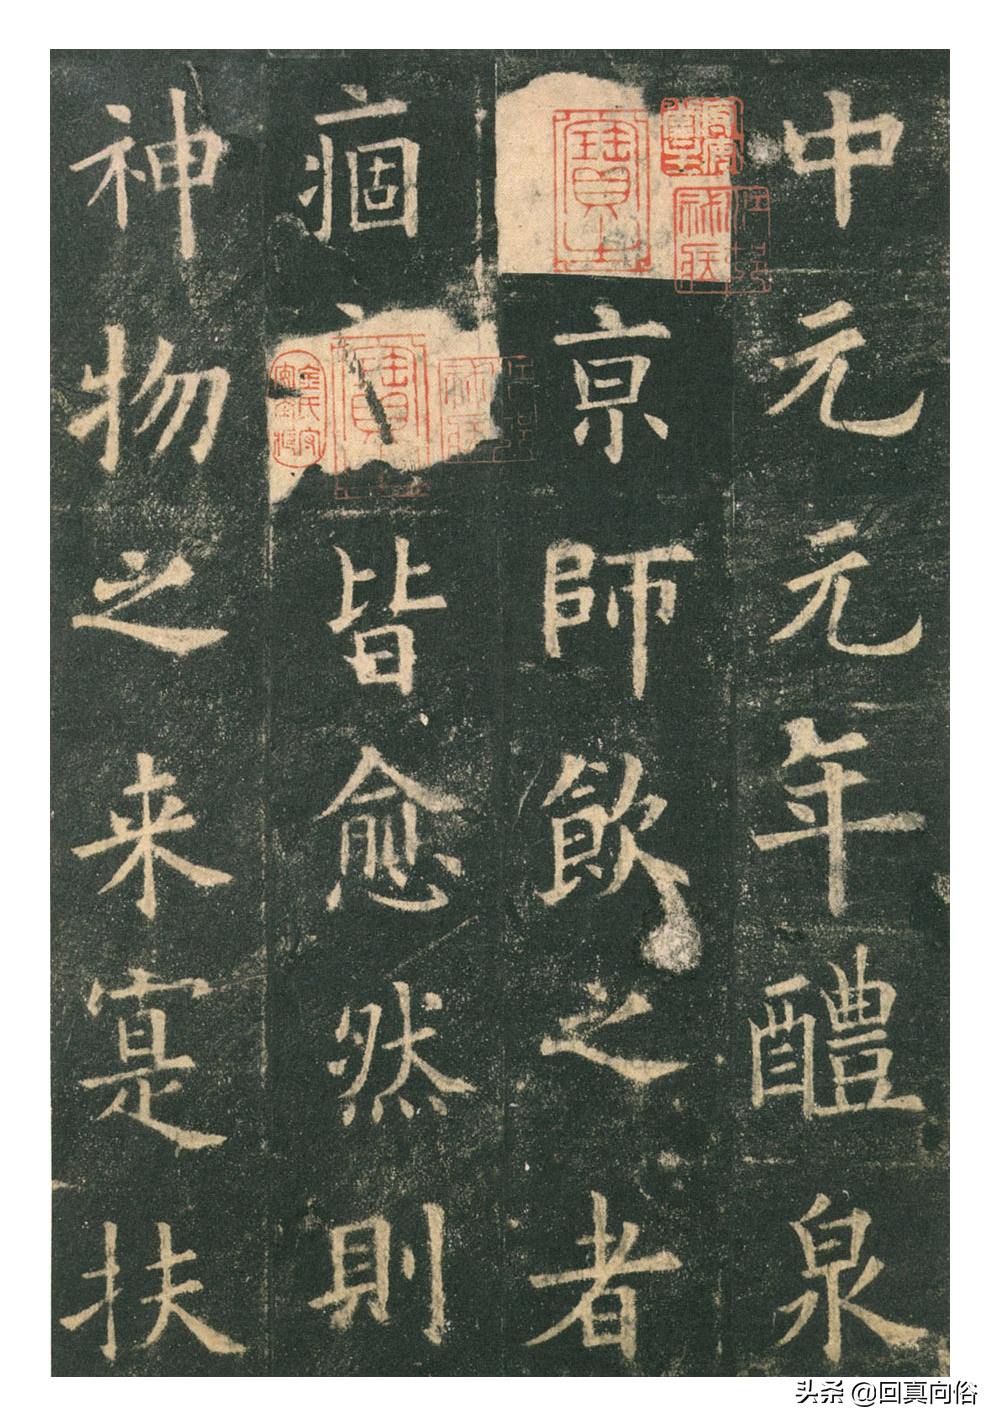 中元元年醴泉
亰師飲之者
痼皆愈然則
神物之来寔扶
头条 @回真向俗